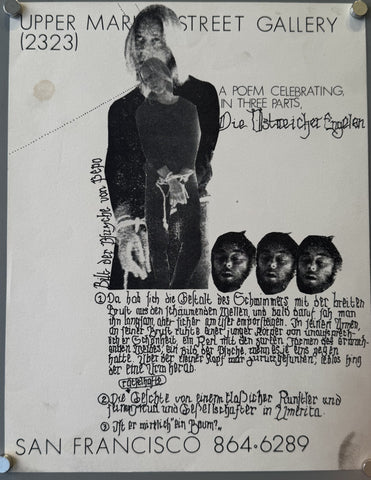 UPPER MARKET STREET GALLERY
(2323)
A POEM CELEBRATING,
IN THREE PARTS,
Die
Engelen
Bilt der von Pepo
① Da hob sich die Gestalt des Schwimmers mit der breiten
Brust aus den schäumenden Wellen, und bald darauf sah man
ihn langsam aber sicher am Ufer emporsteigen. In seinen Armen,
an seiner Brust ruhte einer junger Körper von unaussprech-
licher Schönheit, ein Kerl mit den zarten Formen des
Weibes, ein Bild der Psyche, wenn es je eins gegen
hatte. Über der kleiner Kopf war zurückgesunken, leblos hing
der eine Arm herab.
② Die von einem Künstler und
und Gesellschafter in America.
③ Ist er wirklich "ein Baum?"
SAN FRANCISCO 864•6289